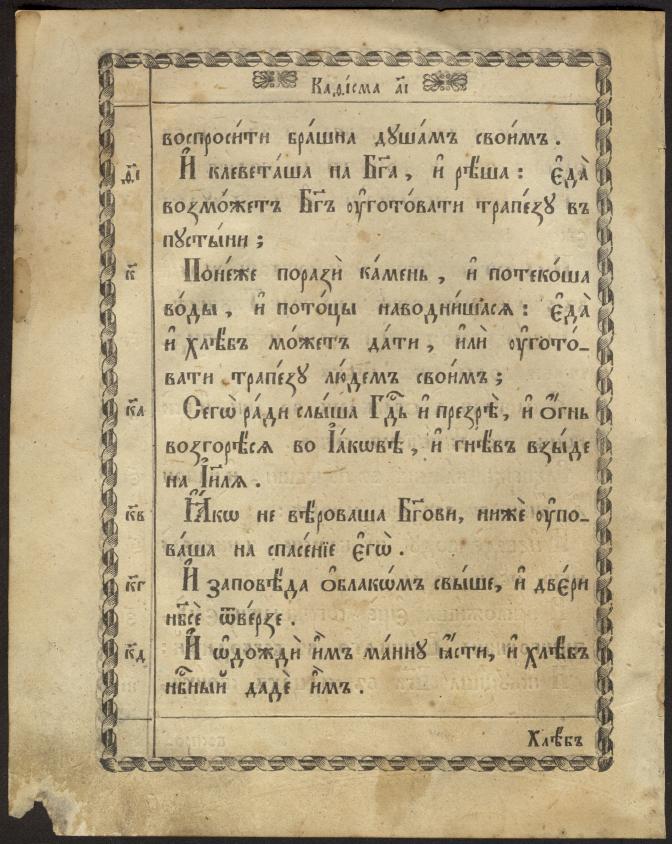 Каѳі́сма а҃і
воспроси́ти бра́шна душа́мъ свои́мъ.
ѳ҃і И҆ клевета́ша на Бг҃а, и҆ рѣ́ша: є҆да̀
возмо́жетъ Бг҃ъ ᲂу҆гото́вати трапе́зу въ
пусты́ни;
к҃ Поне́же поразѝ ка́мень, и҆ потеко́ша
во́ды, и҆ пото́цы наводни́шасѧ: є҆да̀
и҆ хлѣ́бъ мо́жетъ да́ти, и҆лѝ ᲂу҆гото́-
вати трапе́зу лю́демъ свои́мъ;
к҃а Сегѡ̀ ра́ди слы́ша Гдⷭ҇ь и҆ презрѣ̀, и҆ о҆́гнь
возгорѣ́сѧ во І҆а́кѡвѣ, и҆ гнѣ́въ взы́де
на І҆и҃лѧ.
к҃в Ꙗ҆́кѡ не вѣ́роваша Бг҃ови, нижѐ ᲂу҆по-
ва́ша на спасе́нїе є҆гѡ̀.
к҃г И҆ заповѣ́да ѻ҆блакѡ́мъ свы́ше, и҆ две́ри
нб҃сѐ ѿве́рзе.
к҃д И҆ ѡ҆дождѝ и҆̀мъ ма́нну ꙗ҆́сти, и҆ хлѣ́бъ
нб҃ный дадѐ и҆̀мъ.
Хлѣ́бъ